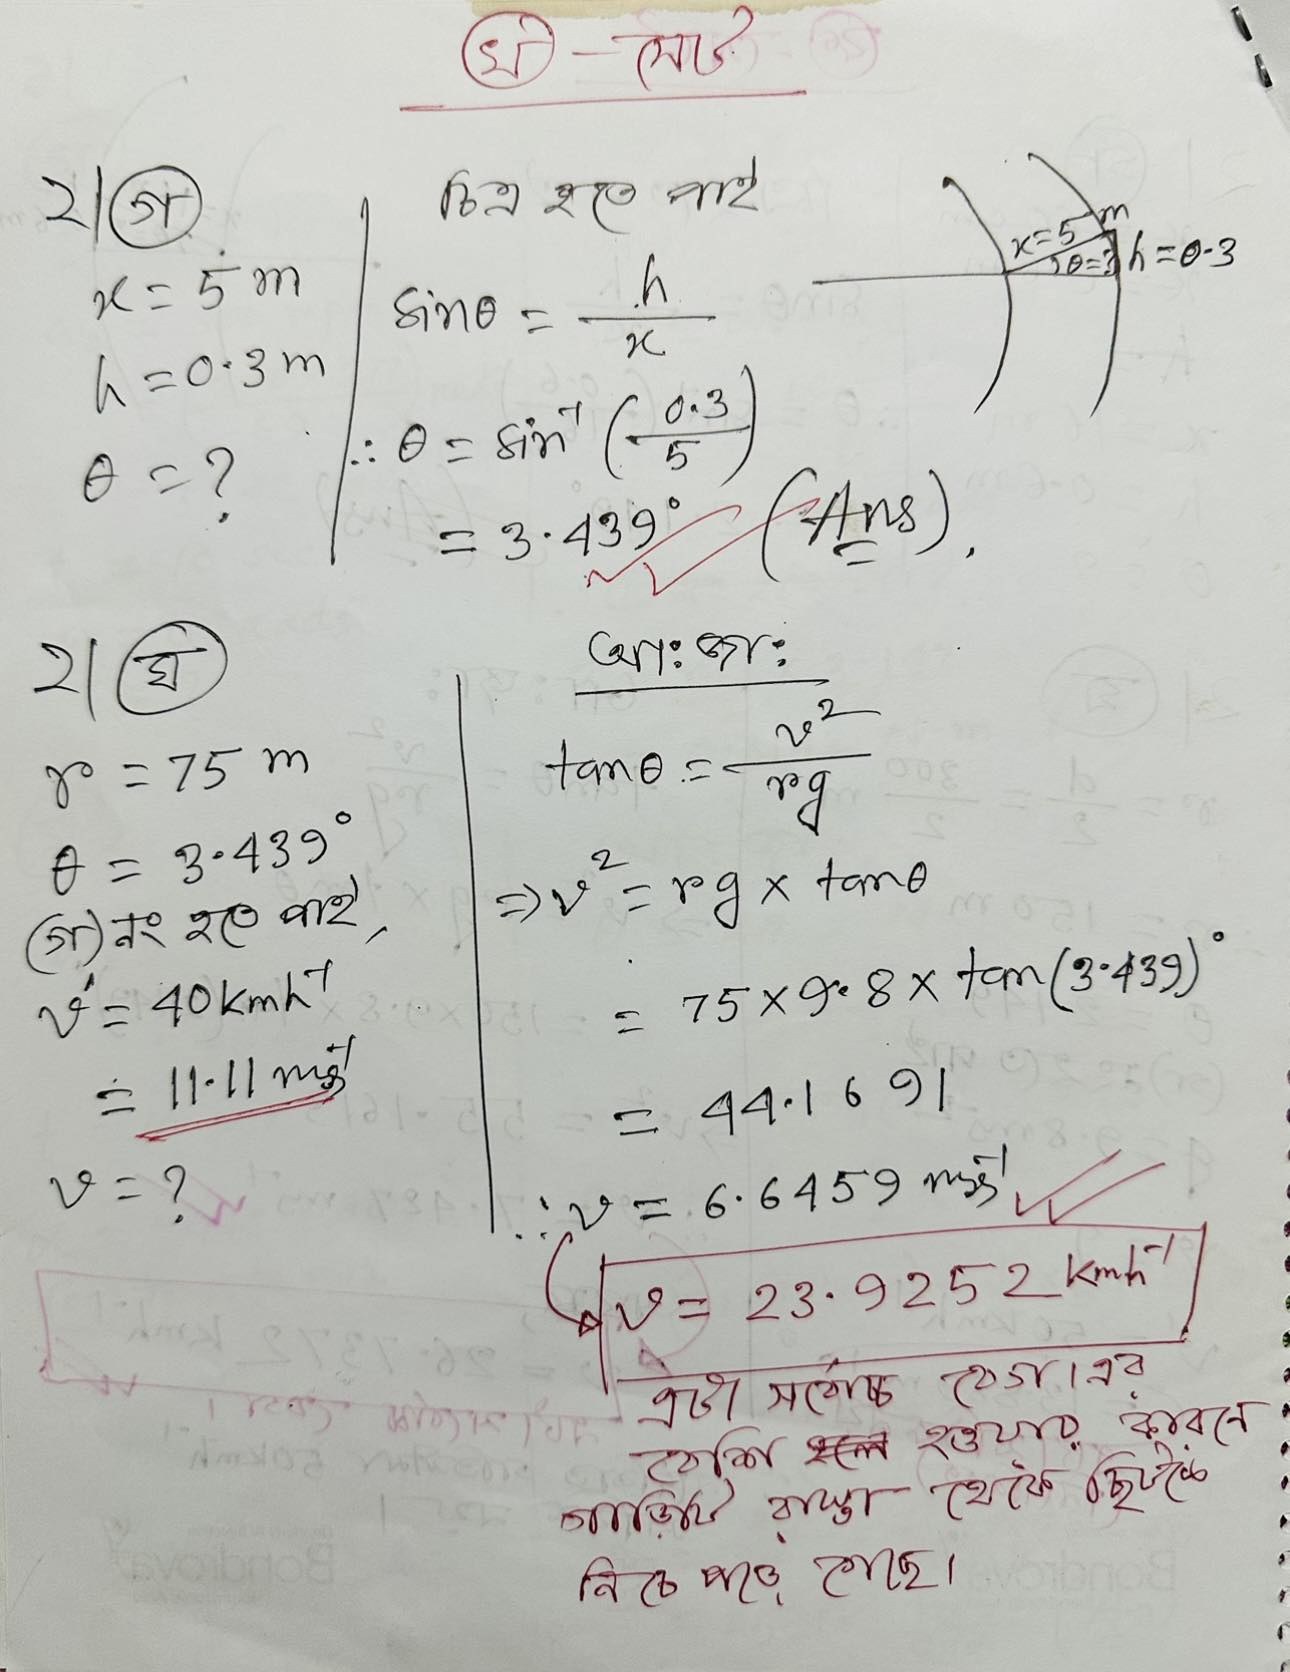 ঘ - সেট
২| গ
x = 5 m
h = 0.3 m
θ = ?
চিত্র হতে পাই
sinθ = h/x
∴ θ = sin⁻¹ (0.3/5)
= 3.439° (Ans).
x = 5 m
θ = ?
h = 0.3
২| ঘ
r = 75 m
θ = 3.439°
(গ) নং হতে পাই,
v' = 40 kmh⁻¹
= 11.11 ms⁻¹
v = ?
আঃ জাঃ
tanθ = v²/rg
⇒ v² = rg × tanθ
= 75 × 9.8 × tan(3.439)°
= 44.1691
∴ v = 6.6459 ms⁻¹
v = 23.9252 kmh⁻¹
এটা সর্বোচ্চ বেগ। এর
বেশি হওয়ার কারনে
গাড়িটি রাস্তা থেকে ছিটকে
নিচে পড়ে গেছে।